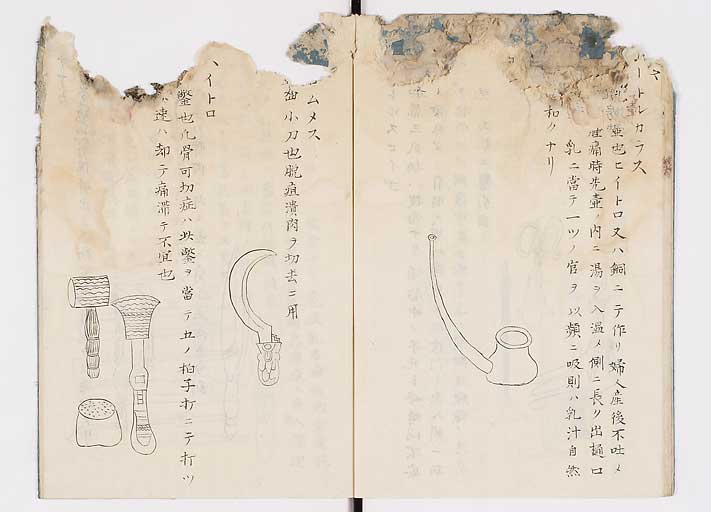 ートレカラス
壷也ヒイトロ又ハ銅ニテ作リ婦人産後不吐メ
痛時先壷ノ内ニ湯ヲ入温メ側ニ長ク出樋口
乳ニ當テ一ツノ官ヲ以頻ニ吸則ハ乳汁自然
和クナリ
ムメス
小刀也脱疽潰肉ヲ切去ニ用
ヘイトロ
鑿也凡骨可切症ハ此鑿ヲ當テ五ノ拍子打ニテ打ツ
速ハ却テ痛滞テ不宜也